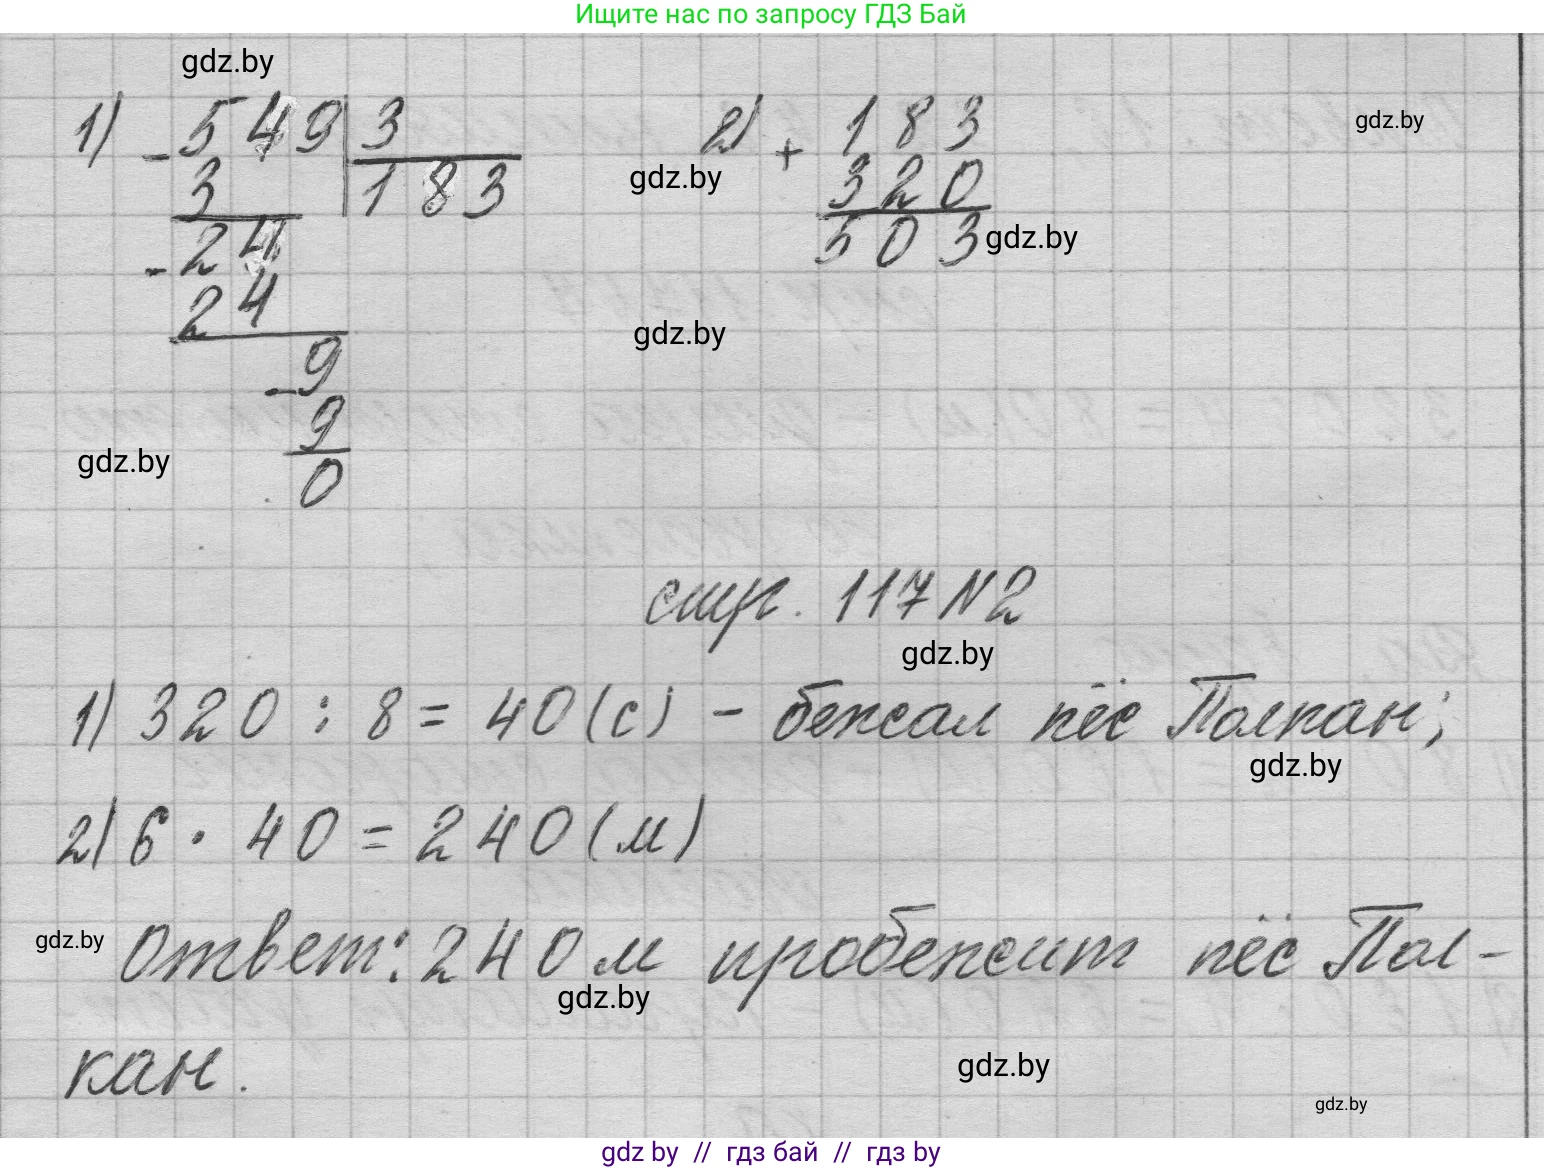 Ищите нас по запросу ГДЗ Бай
gdz.by
1) - 549 | 3
3 183
- 24
24
- 9
9
0
2) + 183
320
503
gdz.by
gdz.by
gdz.by
gdz.by
gdz.by
стр. 117 N 2
gdz.by
1) 320 : 8 = 40 (с) - бежал пёс Полкан;
gdz.by
2) 6 · 40 = 240 (м)
gdz.by
Ответ: 240 м пробежит пёс Пол-
gdz.by
кан.
gdz.by
gdz.by
gdz by // гдз бай // гдз by